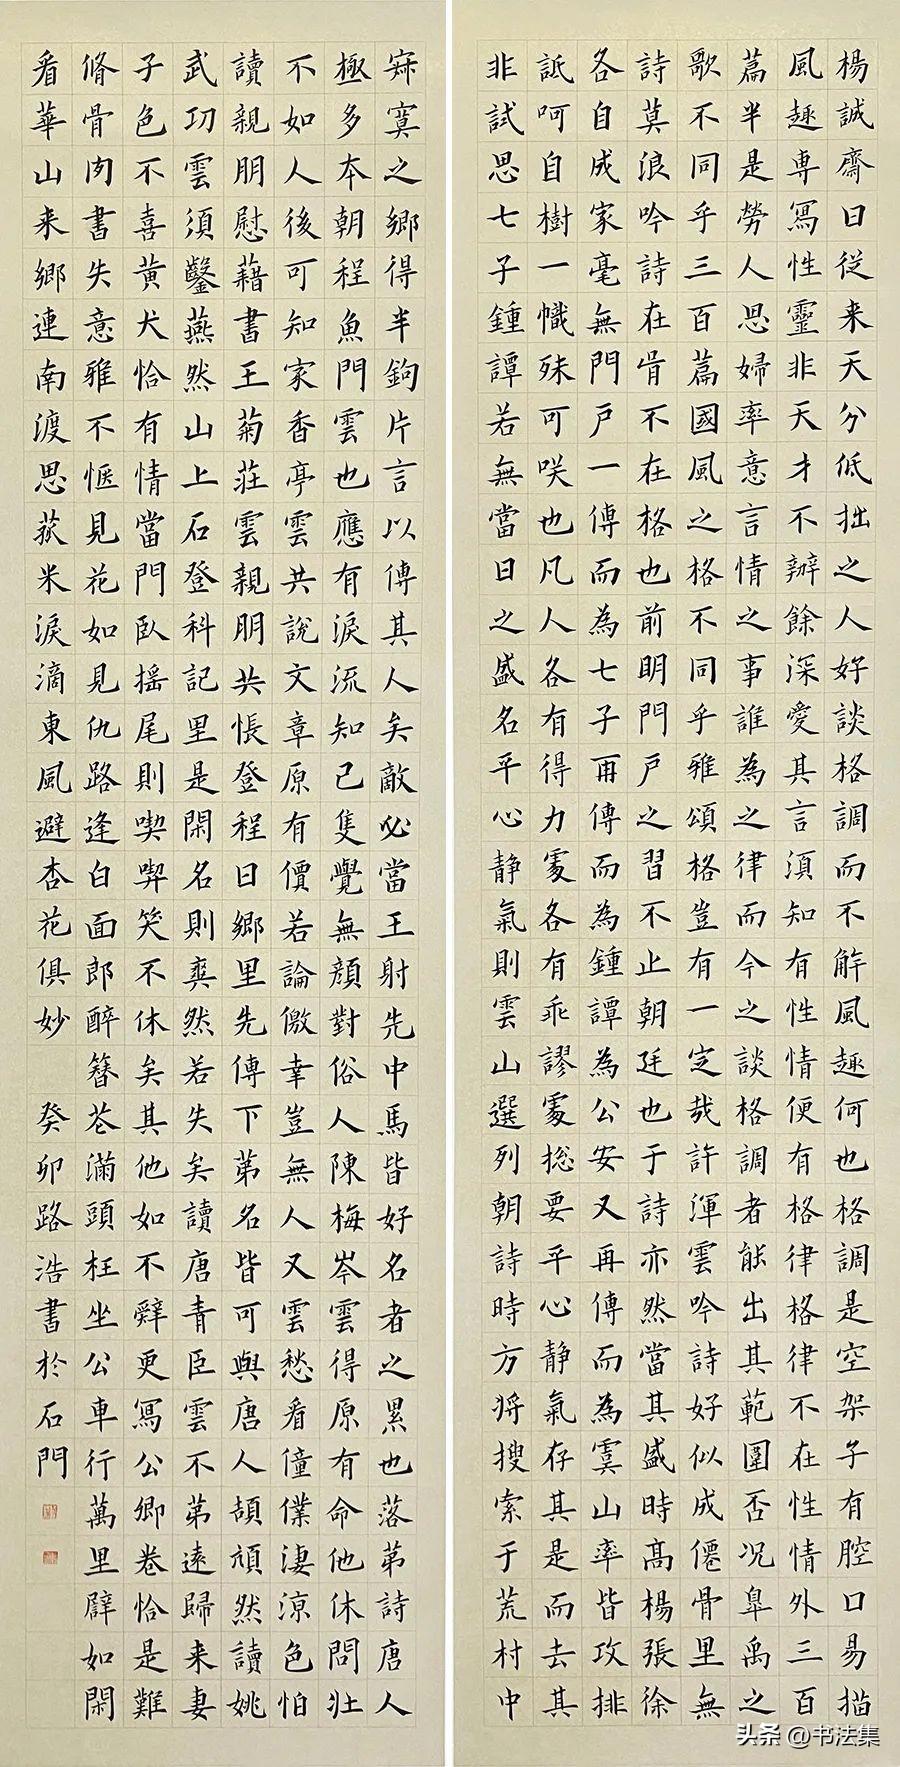 楊誠齋曰從来天分低拙之人好談格調而不解風趣何也格調是空架子有腔口易描
風趣専寫性靈非天才不辦餘深愛其言湏知有性情便有格律格律不在性情外三百
篇半是勞人思婦率意言情之事誰為之律而今之談格調者能出其範圍否況皐禹之
歌不同乎三百篇國風之格不同乎雅頌格豈有一定哉許渾雲吟詩好似成僊骨里無
詩莫浪吟詩在骨不在格也前明門戶之習不止朝廷也于詩亦然當其盛時高楊張徐
各自成家毫無門戶一傳而為七子再傳而為鍾譚為公安又再傳而為虞山率皆攻排
詆呵自樹一幟殊可咲也凡人各有得力處各有乖謬處揔要平心静氣存其是而去其
非試思七子鍾譚若無當日之盛名平心静氣則雲山選列朝詩時方将搜索于荒村中
寂寞之鄉得半鉤片言以傳其人矣敵必當王射先中馬皆好名者之累也落第詩唐人
極多本朝程魚門雲也應有淚流知己隻覺無顔對俗人陳梅岑雲得原有命他休問壯
不如人後可知家香亭雲共說文章原有價若論僥幸豈無人又雲愁看僮僕淒涼色怕
讀親朋慰藉書王菊莊雲親朋共悵登程日鄉里先傳下第名皆可與唐人頡頏然讀姚
武功雲須鑿燕然山上石登科記里是閑名則爽然若失矣讀唐青臣雲不第遠歸来妻
子色不喜黃犬恰有情當門臥搖尾則喫喫笑不休矣其他如不辭更寫公卿卷恰是難
脩骨肉書失意雅不愜見花如見仇路逢白面郎醉簪花滿頭枉坐公車行萬里譬如閑
看華山来鄉連南渡思菰米淚滴東風避杏花俱妙 癸卯路浩書於石門
头条 @书法集